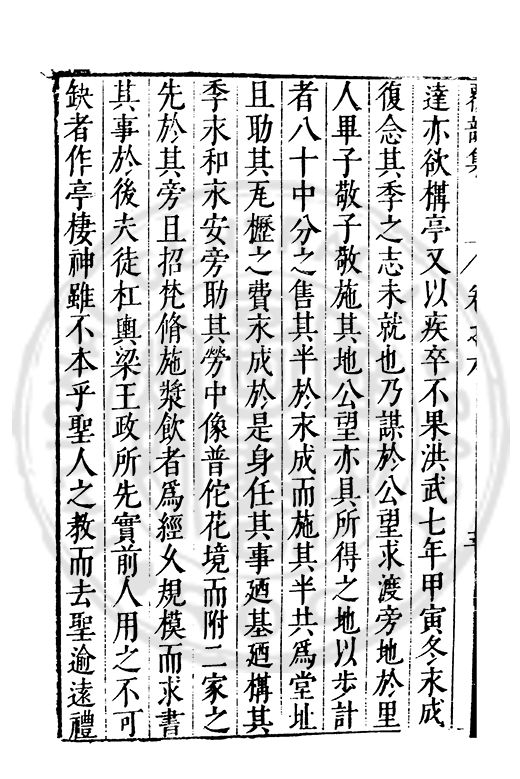 達亦欲構亭又以疾卒不果洪武七年甲寅冬永成
復念其季之志未就也乃謀於公望求渡旁地於里
人畢子敬子敬施其地公望亦具所得之地以步計
者八十中分之售其半於永成而施其半共爲堂址
且助其瓦櫪之費永成於是身任其事廼基廼構其
季永和永安旁助其勞中像普佗花境而附二家之
先於其旁且招梵脩施漿飲者爲經久規模而求書
其事於後夫徒杠輿梁王政所先實前人用之不可
缺者作亭棲神雖不本乎聖人之教而去聖逾遠禮